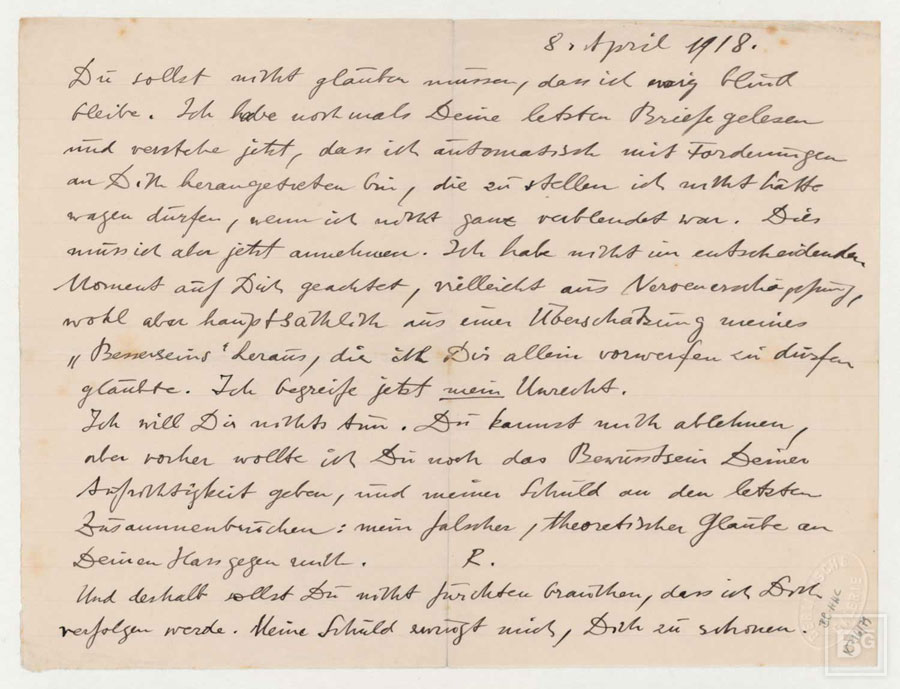 8. April 1918.
Du sollst nicht glauben müssen, dass ich ewig blind
bleibe. Ich habe nochmals Deine letzten Briefe gelesen
und verstehe jetzt, dass ich automatisch mit Forderungen
an Dich herangetreten bin, die zu stellen ich nicht hätte
wagen dürfen, wenn ich nicht ganz verblendet war. Dies
muss ich aber jetzt annehmen. Ich habe nicht im entscheidenden
Moment auf Dich geachtet, vielleicht aus Nervenerschöpfung,
wohl aber hauptsächlich aus einer Überschätzung meines
„Besserseins" heraus, die ich Dir allein vorwerfen zu dürfen
glaubte. Ich begreife jetzt mein Unrecht.
Ich will Dir nichts tun. Du kannst mich ablehnen,
aber vorher wollte ich Dir noch das Bewusstsein Deiner
Aufrichtigkeit geben, und meiner Schuld an den letzten
Zusammenbrüchen: mein falscher, theoretischer Glaube an
Deinen Hass gegen mich. R.
Und deshalb sollst Du nicht fürchten brauchen, dass ich Dich
verfolgen werde. Meine Schuld zwingt mich, Dich zu schonen.
BG